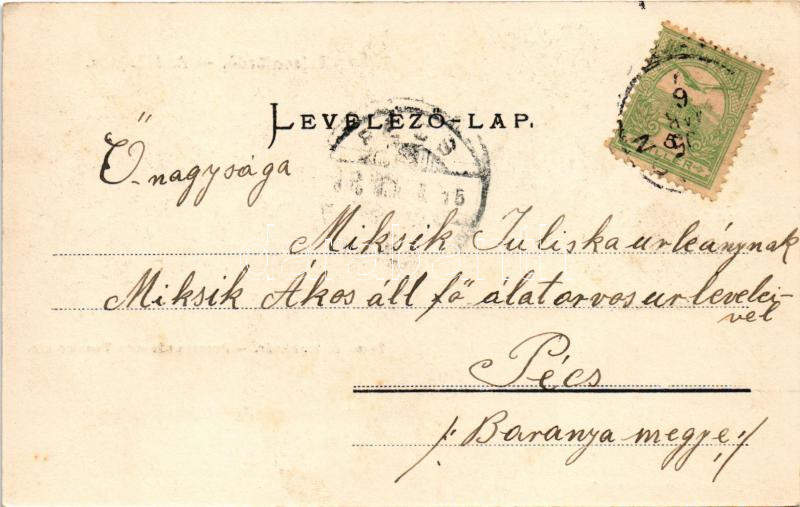 LEVELEZŐ-LAP.
Ő nagysága
Miksik Juliska urleánynak
Miksik Ákos áll fő álatorvos ur levelei-
vel
Pécs
/: Baranya megye :/